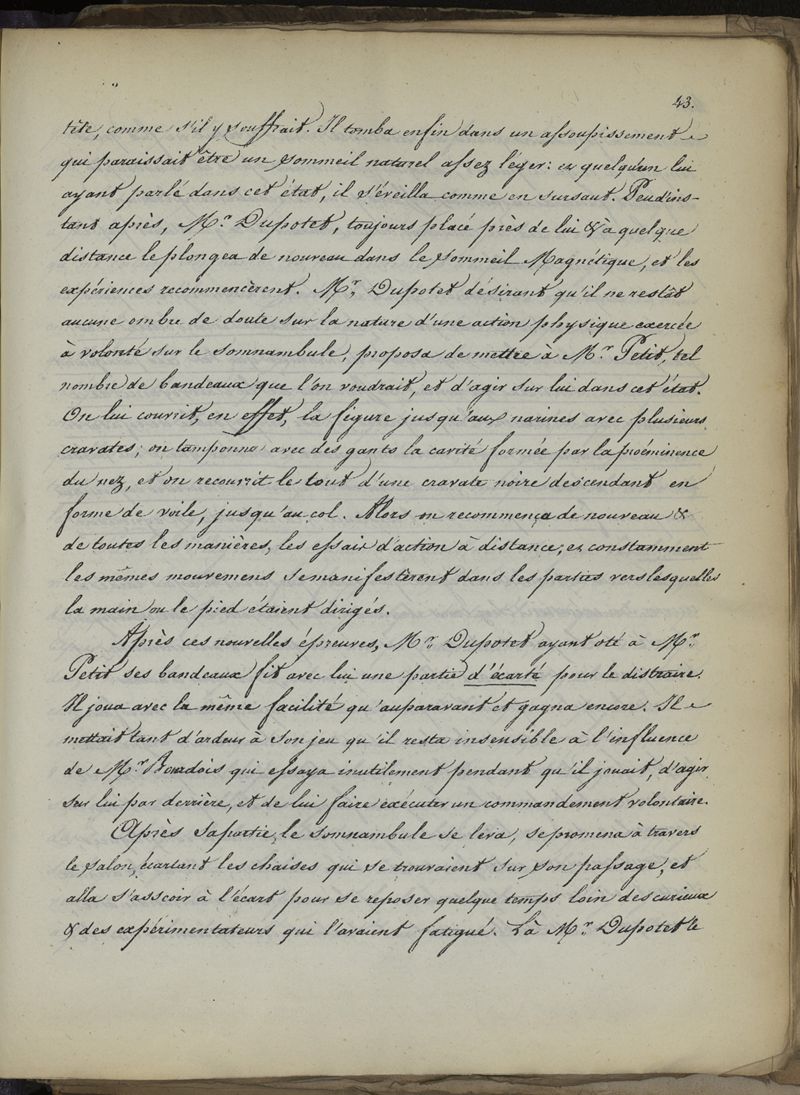 43.
tête, comme s'il y souffrait. Il tomba enfin dans un assoupissement
qui paraissait être un sommeil naturel assez léger: et quelqu'un lui
ayant parlé dans cet état, il s'éveilla comme en sursaut. Peu d'ins-
tant après, Mr. Dupotet, toujours placé près de lui & à quelque
distance le plongea de nouveau dans le sommeil Magnétique, et les
expériences recommencèrent. Mr. Dupotet désirant qu'il ne restât
aucune ombre de doute sur la nature d'une action physique exercée
à volonté sur le somnambule, proposa de mettre à Mr. Petit, tel
nombre de bandeaux que l'on voudrait, et d'agir sur lui dans cet état.
On lui couvrit, en effet, la figure jusqu'aux narines avec plusieurs
cravates; on tamponna avec des gants la cavité formée par la proéminence
du nez, et on recouvrit le tout d'une cravate noire descendant en
forme de voile, jusqu'au col. Alors on recommença de nouveau &
de toutes les manières, les essais d'action à distance; et constamment
les mêmes mouvemens se manifestèrent dans les parties vers lesquelles
la main ou le pied étaient dirigés.
Après ces nouvelles épreuves, Mr. Dupotet ayant oté à Mr.
Petit ses bandeaux fit avec lui une partie d'écarté pour le distraire.
Il joua avec la même facilité qu'auparavant et gagna encore. Il
mettait tant d'ardeur à son jeu qu'il resta insensible à l'influence
de Mr. Bourdois qui essaya inutilement pendant qu'il jouait, d'agir
sur lui par derrière, et de lui faire exécuter un commandement volontaire.
Après sa partie, le somnambule se leva, se promena à travers
le salon, écartant les chaises qui se trouvaient sur son passage, et
alla s'asseoir à l'écart pour se reposer quelque temps loin des curieux
& des expérimentateurs qui l'avaient fatigué. Là Mr. Dupotet le